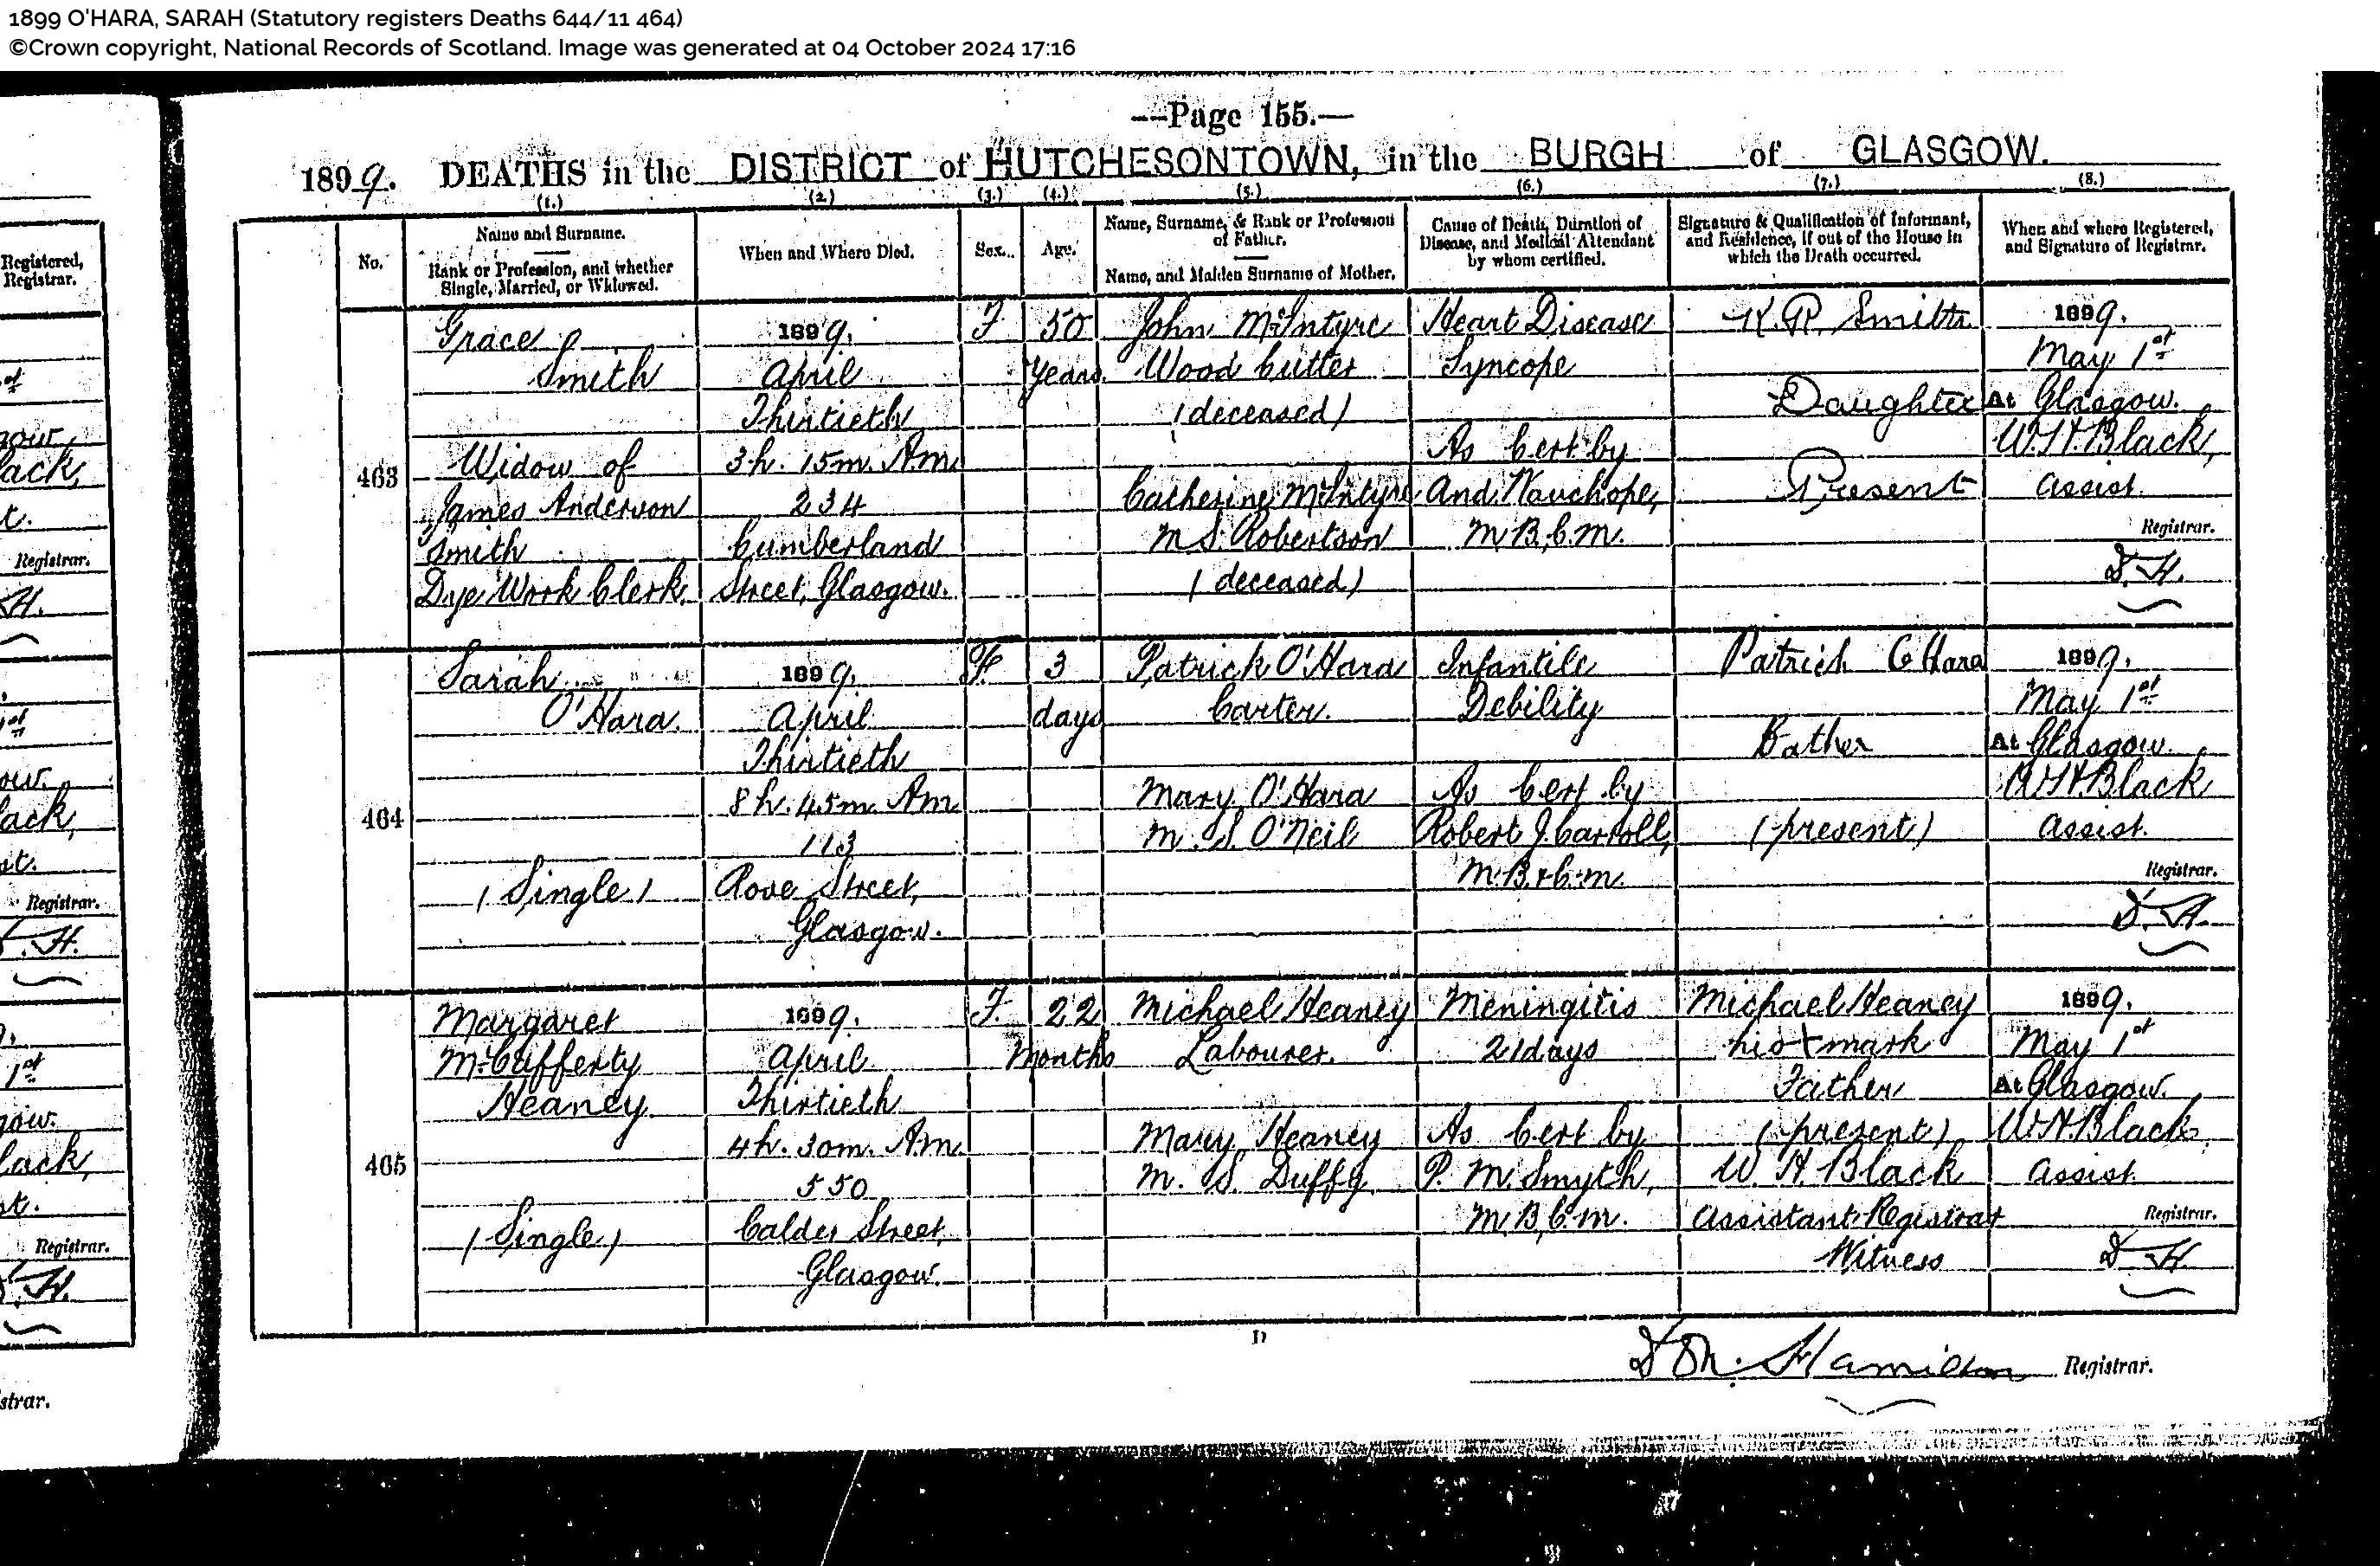 1899 O'HARA, SARAH (Statutory registers Deaths 644/11 464)
©Crown copyright, National Records of Scotland. Image was generated at 04 October 2024 17:16
—Page 155.—
1899. DEATHS in the DISTRICT of HUTCHESONTOWN, in the BURGH of GLASGOW.
(1.) (2.) (3.) (4.) (5.) (6.) (7.) (8.)
No.
Name and Surname.
Rank or Profession, and whether
Single, Married, or Widowed.
When and Where Died.
Sex.
Age.
Name, Surname, & Rank or Profession
of Father.
Name, and Maiden Surname of Mother.
Cause of Death, Duration of
Disease, and Medical Attendant
by whom certified.
Signature & Qualification of Informant,
and Residence, if out of the House in
which the Death occurred.
When and where Registered,
and Signature of Registrar.
463
Grace
Smith
Widow of
James Anderson
Smith
Dye Work Clerk.
1899.
April
Thirtieth
3h. 15m. Am.
234
Cumberland
Street, Glasgow.
F
50
Years.
John McIntyre
Wood Cutter
(deceased)
Catherine McIntyre
M.S. Robertson
(deceased)
Heart Disease
Syncope
As Cert by
And. Wauchope,
M.B, C.M.
K.R. Smith
Daughter
Present
1899.
May 1st
At Glasgow.
W.H. Black,
Assist.
Registrar.
D.H.
464
Sarah
O'Hara.
(Single)
1899.
April
Thirtieth
8h. 45m. Am
113
Rose Street,
Glasgow.
F.
3
days
Patrick O'Hara
Carter.
Mary O'Hara
M.S. O'Neil
Infantile
Debility
As Cert by
Robert J. Carroll,
M.B. & C.M.
Patrick O Hara
Father
(present)
1899.
May 1st
At Glasgow.
W.H. Black
Assist.
Registrar.
D.H.
465
Margaret
McCafferty
Heaney
(Single)
1899.
April
Thirtieth
4h. 30m. Am.
550
Calder Street,
Glasgow.
F.
22
Months
Michael Heaney
Labourer.
Mary Heaney
M.S. Duffy
Meningitis
21 days
As Cert by
P. M. Smyth,
M.B, C.M.
Michael Heaney
his x mark
Father
(present)
W. H Black
Assistant Registrar
Witness
1899.
May 1st
At Glasgow.
W.H. Black,
Assist.
Registrar.
D.H.
D
Hamilton Registrar.
Registered,
Registrar.
Registrar.
Registrar.
Registrar.